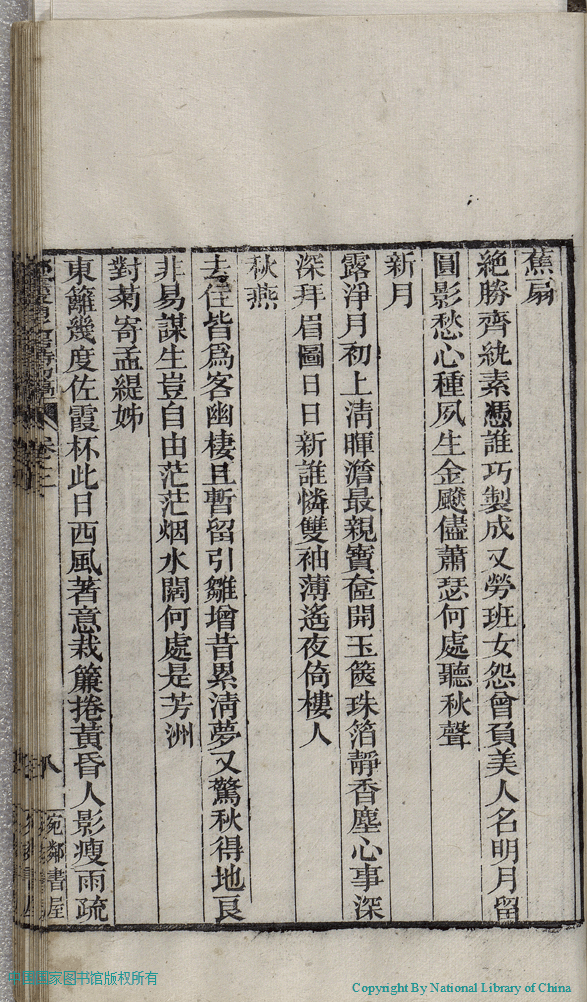 蕉扇
絶勝齊紈素憑誰巧製成又勞班女怨曾負美人名明月留
圓影愁心種夙生金飇儘蕭瑟何處聽秋聲
新月
露淨月初上淸暉澹最親寶奩開玉篋珠箔靜香塵心事深
深拜眉圖日日新誰憐雙袖薄遙夜倚樓人
秋燕
去住皆爲客幽棲且暫留引雛增昔累淸夢又驚秋得地良
非易謀生豈自由茫茫烟水闊何處是芳洲
對菊寄孟緹姊
東籬幾度佐霞杯此日西風著意栽簾捲黃昏人影瘦雨疏
卷二
八
宛鄰書屋
国家图书馆版权所有
Copyright By National Library of China